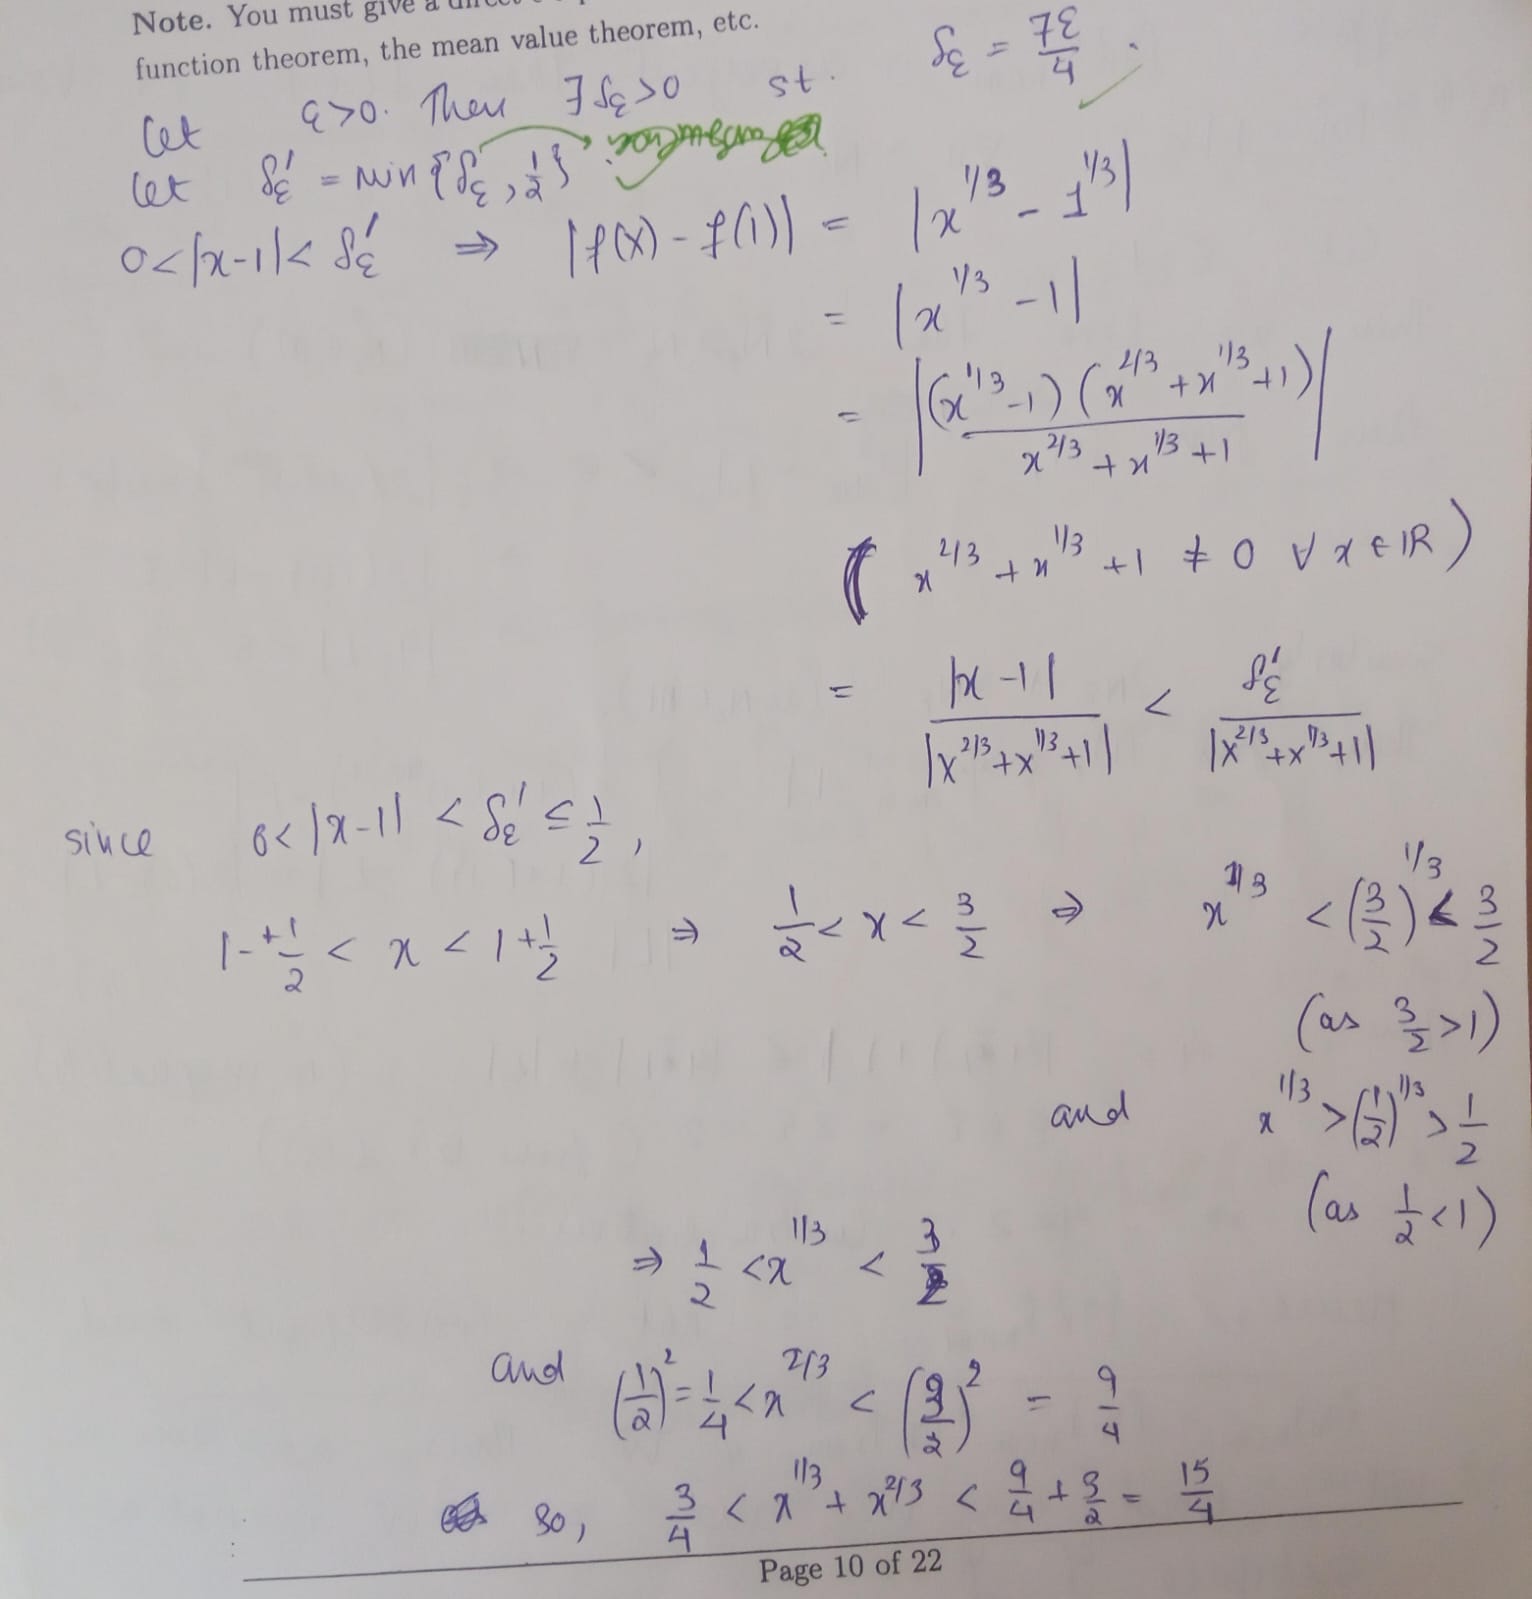 Note. You must give a direct
function theorem, the mean value theorem, etc.
Let ε>0. Then ∃ δ_ε >0 st. δ_ε = 7ε/4.
Let δ'_ε = min{δ_ε, 1/2}.
0<|x-1|< δ'_ε ⇒ |f(x) - f(1)| = |x^{1/3} - 1^{1/3}|
= |x^{1/3} - 1|
= |(x^{1/3} - 1)(x^{2/3} + x^{1/3} + 1) / (x^{2/3} + x^{1/3} + 1)|
(x^{2/3} + x^{1/3} + 1 ≠ 0 ∀ x ∈ ℝ)
= |x - 1| / |x^{2/3} + x^{1/3} + 1| < δ'_ε / |x^{2/3} + x^{1/3} + 1|
since 0< |x-1| < δ'_ε ≤ 1/2,
1 - + 1/2 < x < 1 + 1/2 ⇒ 1/2 < x < 3/2 ⇒ x^{1/3} < (3/2)^{1/3} < 3/2
(as 3/2 >1)
and x^{1/3} > (1/2)^{1/3} > 1/2
(as 1/2 <1)
⇒ 1/2 < x^{1/3} < 3/2
and (1/2)^2 = 1/4 < x^{2/3} < (3/2)^2 = 9/4
So, 3/4 < x^{1/3} + x^{2/3} < 9/4 + 3/2 = 15/4
Page 10 of 22